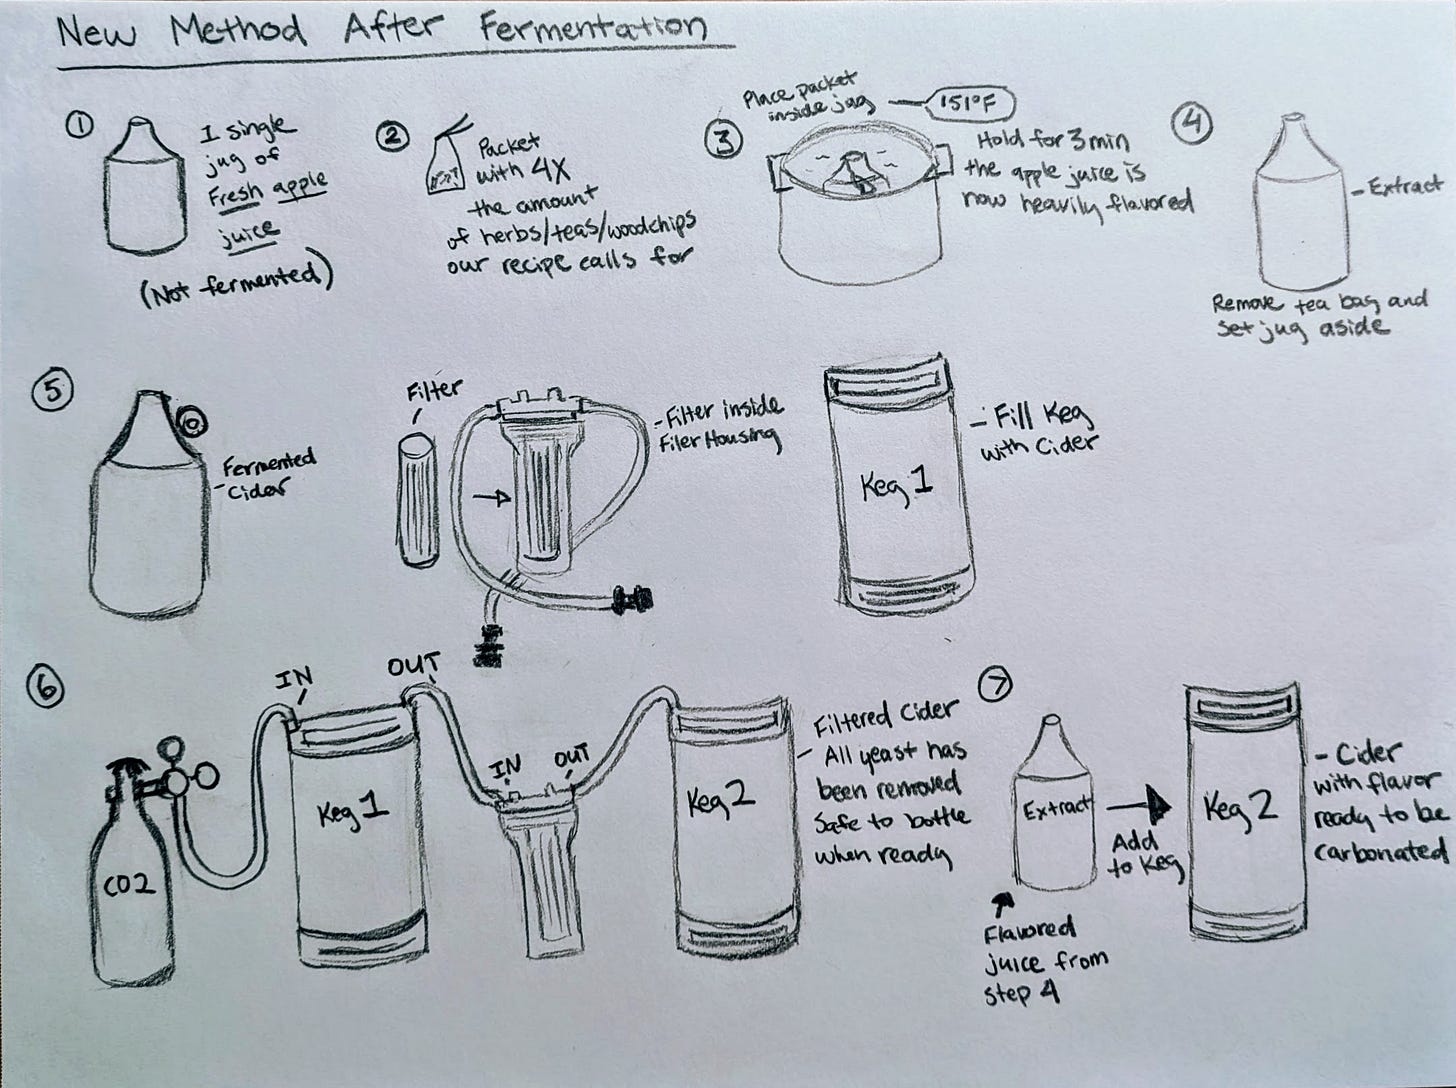 New Method After Fermentation
1
1 single
jug of
Fresh apple
juice
(Not fermented)
2
Packet
with 4X
the amount
of herbs/teas/woodchips
our recipe calls for
3
Place packet
inside jug
151°F
Hold for 3 min
the apple juice is
now heavily flavored
4
Extract
Remove tea bag and
set jug aside
5
Fermented
Cider
Filter
Filter inside
Filer Housing
Keg 1
Fill Keg
with Cider
6
CO2
IN
OUT
Keg 1
IN
OUT
Keg 2
Filtered Cider
- All yeast has
been removed
Safe to bottle
when ready
7
Extract
Add
to Keg
Flavored
juice from
step 4
Keg 2
- Cider
with flavor
ready to be
carbonated